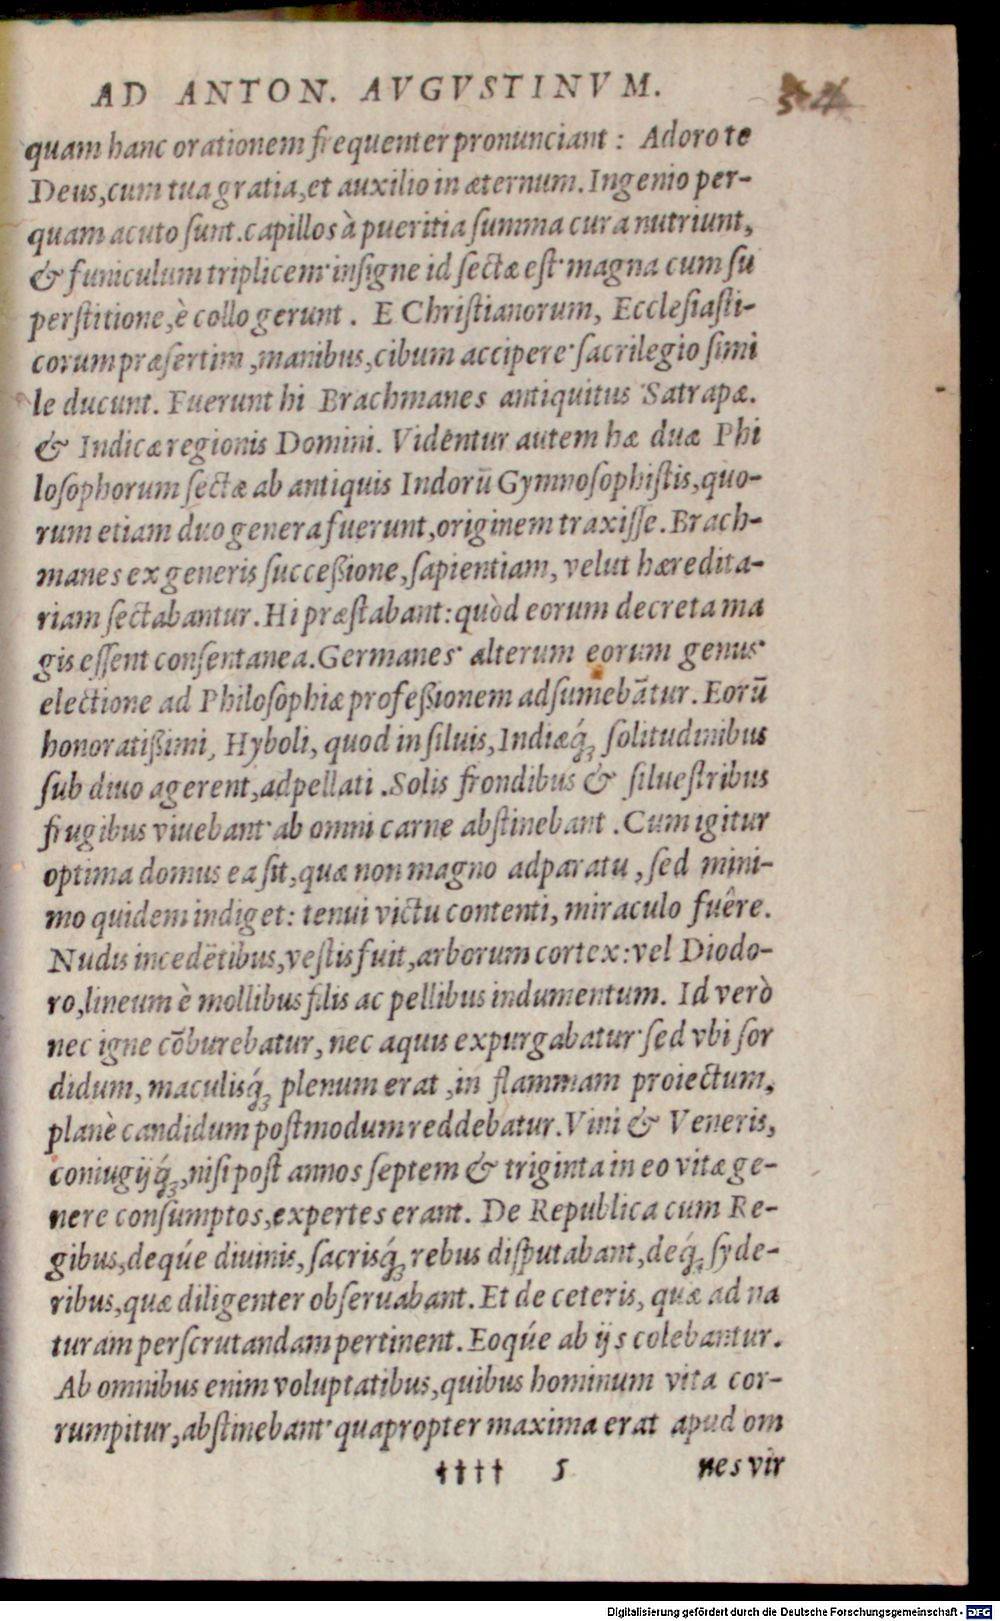 AD ANTON. AVGVSTINVM.
54
quam hanc orationem frequenter pronunciant : Adoro te
Deus, cum tua gratia, et auxilio in æternum. Ingenio per-
quam acuto sunt. capillos à pueritia summa cura nutriunt,
& funiculum triplicem· insigne id sectæ est· magna cum su
perstitione, è collo gerunt . E Christianorum, Ecclesiasti-
corum præsertim, manibus, cibum accipere· sacrilegio simi
le ducunt. Fuerunt hi Brachmanes antiquitus Satrapæ.
& Indicæ regionis Domini. Videntur autem hæ duæ Phi
losophorum sectæ ab antiquis Indorū Gymnosophistis, quo-
rum etiam duo genera fuerunt, originem traxisse. Brach-
manes ex generis succeßione, sapientiam, velut hæredita-
riam sectabantur. Hi præstabant: quòd eorum decreta ma
gis essent consentanea. Germanes· alterum eorum genus·
electione ad Philosophiæ profeßionem adsumebātur. Eorū
honoratißimi, Hyboli, quod in siluis, Indiæq́ꝫ solitudinibus
sub diuo agerent, adpellati . Solis frondibus & siluestribus
frugibus viuebant· ab omni carne abstinebant . Cum igitur
optima domus ea sit, quæ non magno adparatu, sed mini-
mo quidem indiget: tenui victu contenti, miraculo fuêre.
Nudis incedētibus, vestis fuit, arborum cortex: vel Diodo-
ro, lineum è mollibus filis ac pellibus indumentum. Id verò
nec igne cōburebatur, nec aquis expurgabatur· sed vbi sor
didum, maculisq́ꝫ plenum erat, in flammam proiectum,
planè candidum postmodum reddebatur. Vini & Veneris,
coniugijq́ꝫ, nisi post annos septem & triginta in eo vitæ ge-
nere consumptos, expertes erant. De Republica cum Re-
gibus, deqúe diuinis, sacrisq́ꝫ rebus disputabant, deq́ꝫ syde-
ribus, quæ diligenter obseruabant. Et de ceteris, quæ ad na
turam perscrutandam pertinent. Eoqúe ab ijs colebantur.
Ab omnibus enim voluptatibus, quibus hominum vita cor-
rumpitur, abstinebant· quapropter maxima erat apud om
†††† 5 nes vir
Digitalisierung gefördert durch die Deutsche Forschungsgemeinschaft - DFG